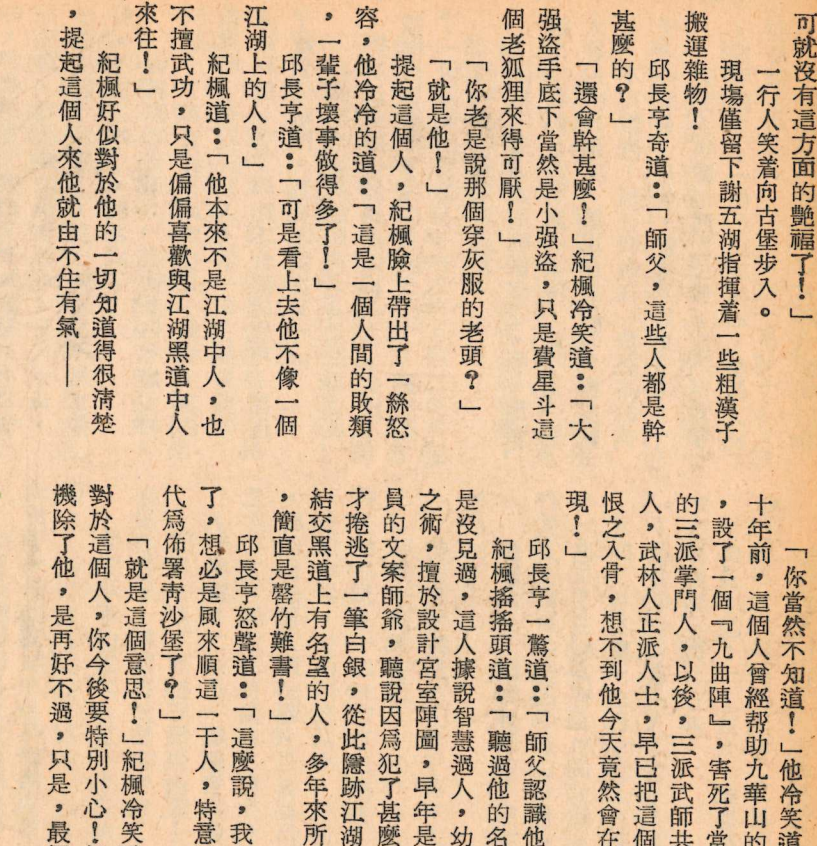 可就沒有這方面的艷福了！」
一行人笑着向古堡步入。
現塲僅留下謝五湖指揮着一些粗漢子
搬運雜物！
邱長亨奇道：「師父，這些人都是幹
甚麼的？」
「還會幹甚麼！」紀楓冷笑道：「大
强盜手底下當然是小强盜，只是費星斗這
個老狐狸來得可厭！」
「你老是說那個穿灰服的老頭？」
「就是他！」
提起這個人，紀楓臉上帶出了一絲怒
容，他冷冷的道：「這是一個人間的敗類
，一輩子壞事做得多了！」
邱長亨道：「可是看上去他不像一個
江湖上的人！」
紀楓道：「他本來不是江湖中人，也
不擅武功，只是偏偏喜歡與江湖黑道中人
來往！」
紀楓好似對於他的一切知道得很清楚
，提起這個人來他就由不住有氣——
「你當然不知道！」他冷笑道
十年前，這個人曾經帮助九華山的
，設了一個『九曲陣』，害死了當
的三派掌門人，以後，三派武師共
人，武林人正派人士，早已把這個
恨之入骨，想不到他今天竟然會在
現！」
邱長亨一驚道：「師父認識他
紀楓搖搖頭道：「聽過他的名
是沒見過，這人據說智慧過人，幼
之術，擅於設計宮室陣圖，早年是
員的文案師爺，聽說因爲犯了甚麼
才捲逃了一筆白銀，從此隱跡江湖
結交黑道上有名望的人，多年來所
，簡直是罄竹難書！」
邱長亨怒聲道：「這麼說，我
了，想必是風來順這一干人，特意
代爲佈署靑沙堡了？」
「就是這個意思！」紀楓冷笑
對於這個人，你今後要特別小心！
機除了他，是再好不過，只是，最